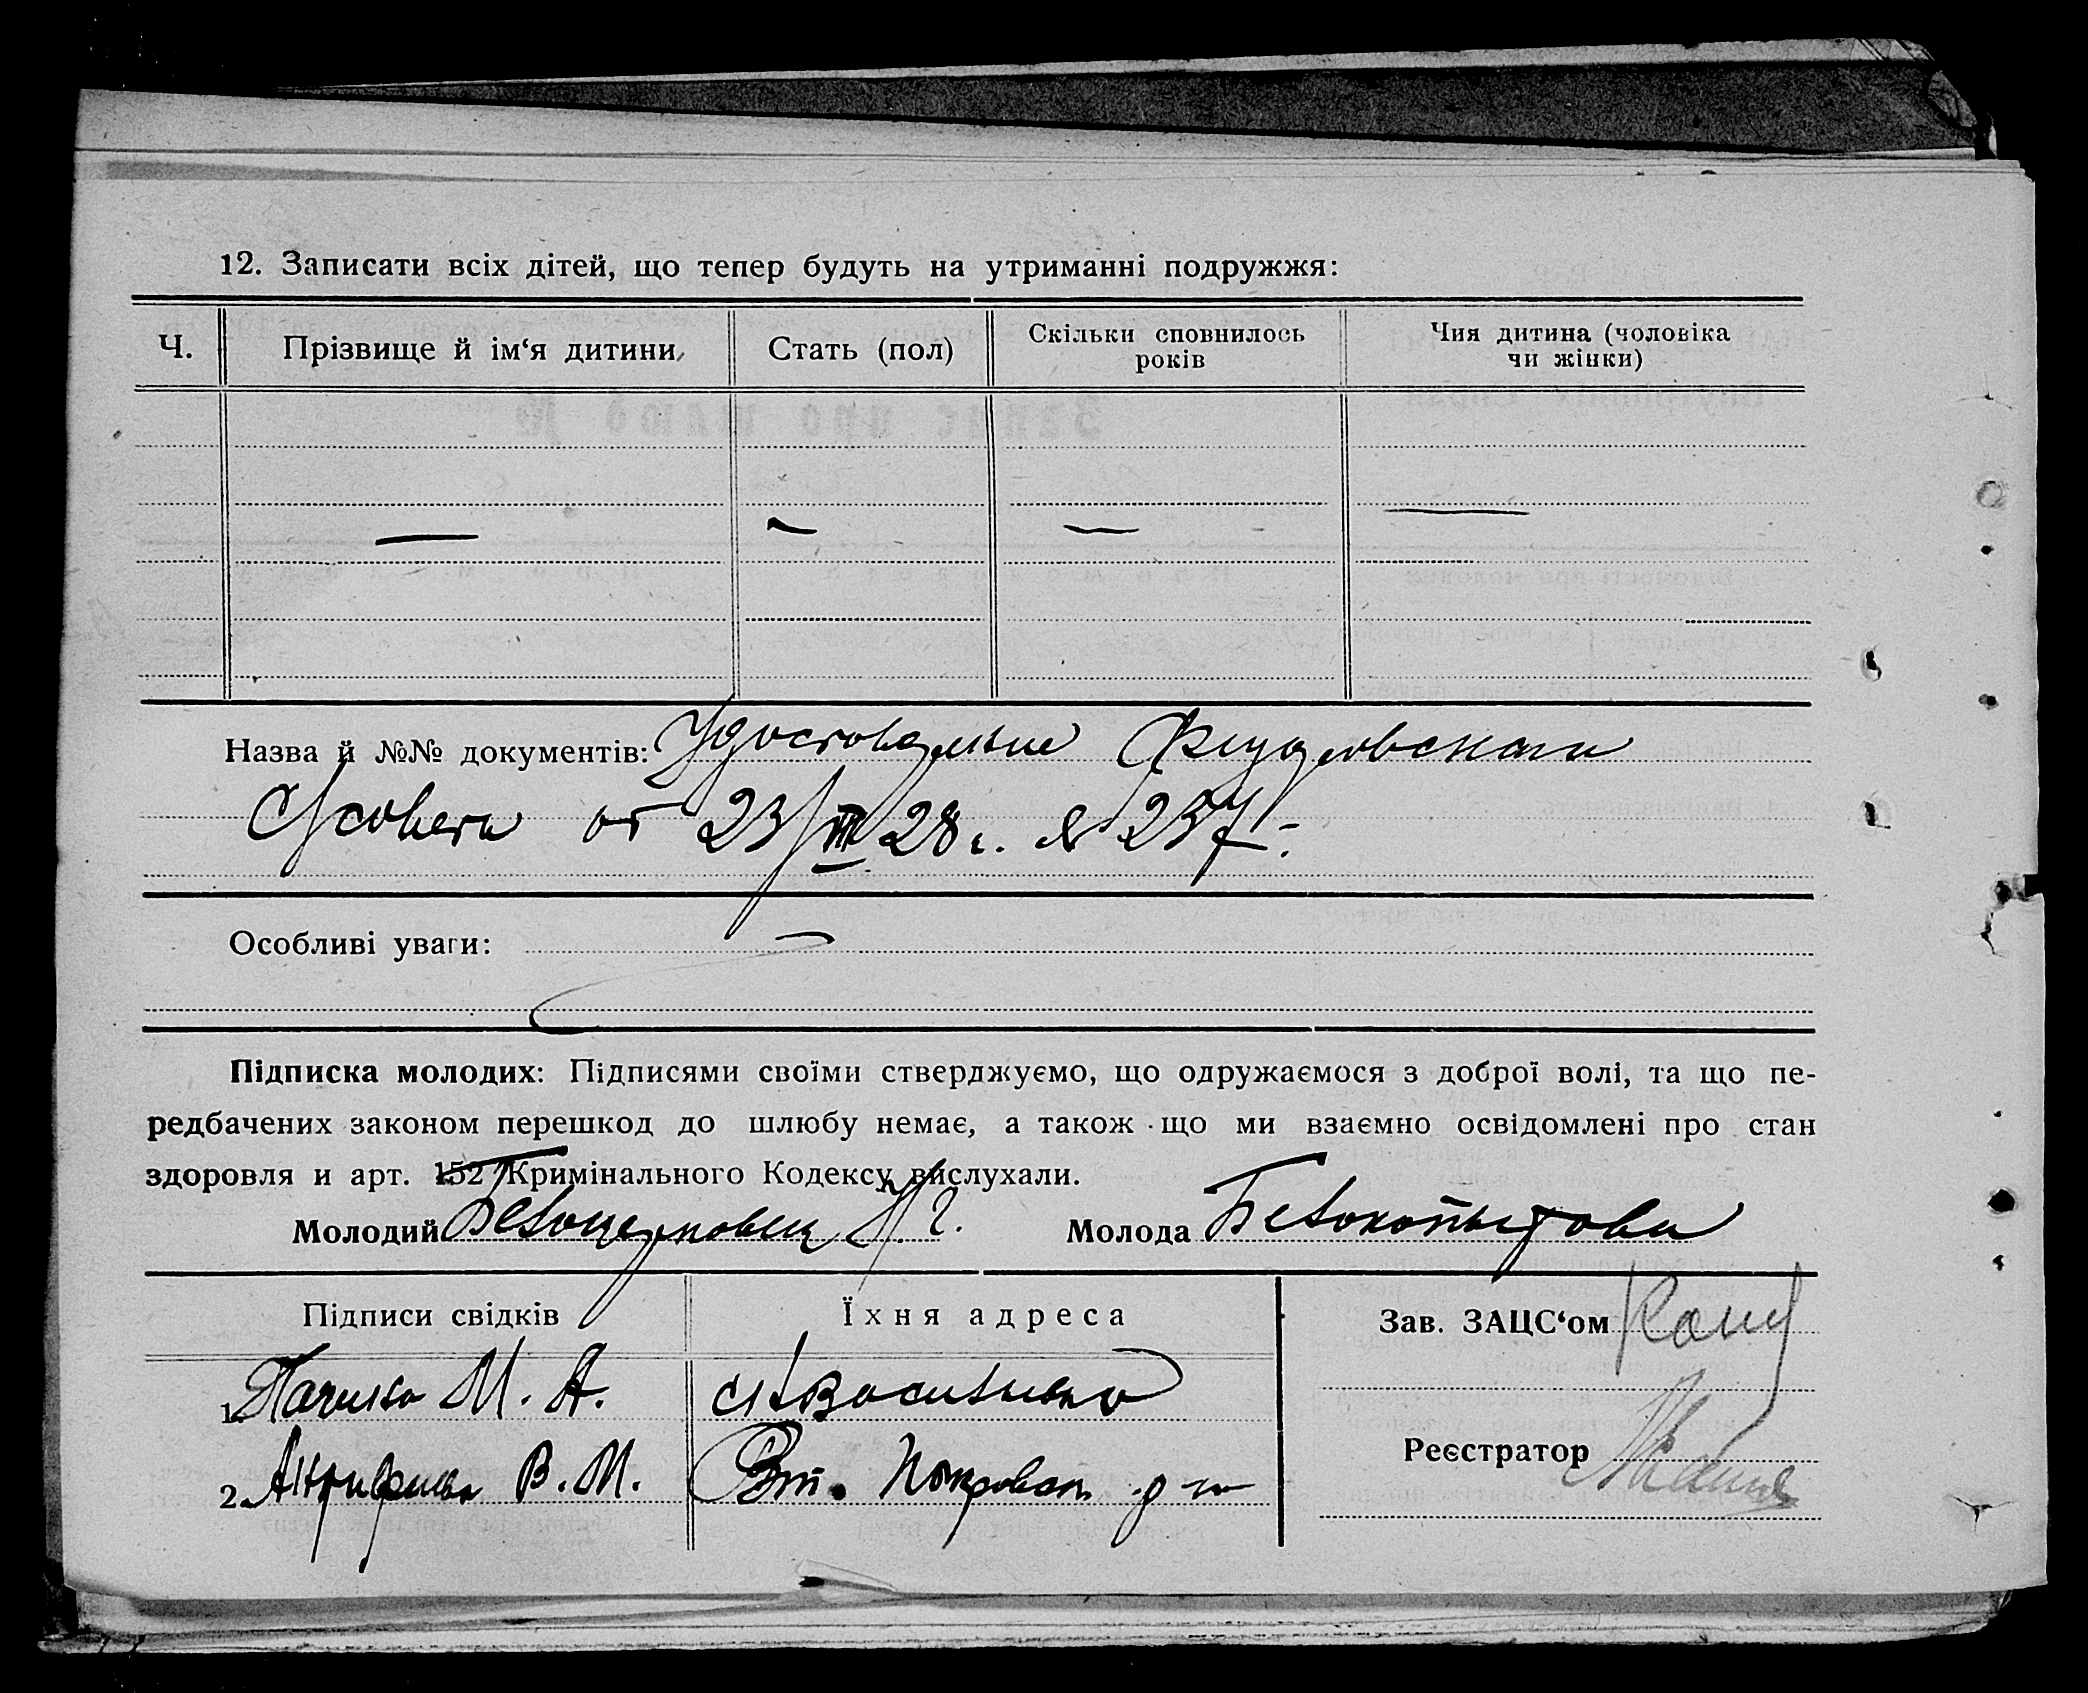 12. Записати всіх дітей, що тепер будуть на утриманні подружжя:
Ч. Прізвище й ім‘я дитини Стать (пол) Скільки сповнилось років Чия дитина (чоловіка чи жінки)
— — — —
Назва й №№ документів: Удостоверение
от 23/III 28 г. № 237.
Особливі уваги: —
Підписка молодих: Підписями своїми стверджуємо, що одружаємося з доброї волі, та що пе-
редбачених законом перешкод до шлюбу немає, а також що ми взаємно освідомлені про стан
здоровля и арт. 152 Кримінального Кодексу вислухали.
Молодий Молода Белокопытова
Підписи свідків Їхня адреса Зав. ЗАЦС‘ом
1. М. А.
Реєстратор
2. В. М. Покровск. р-н